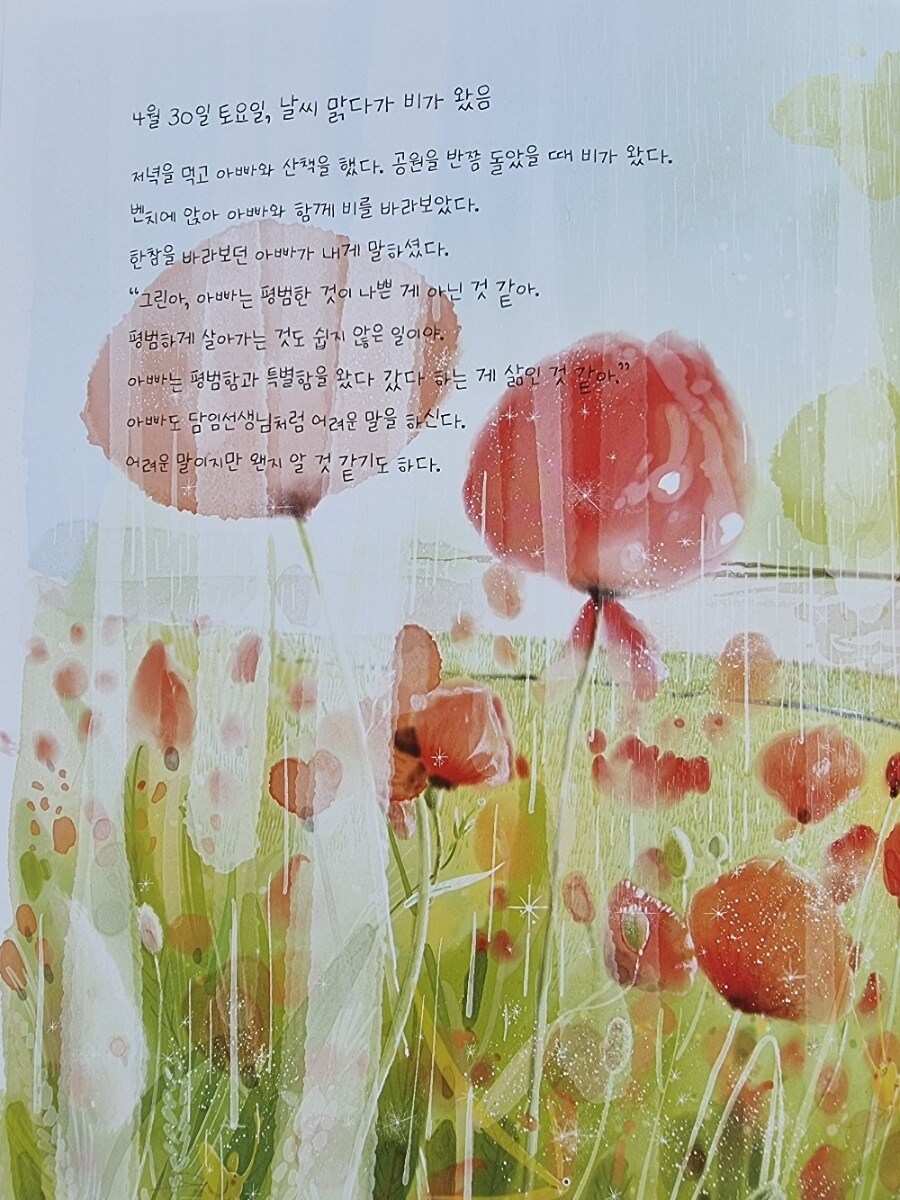 4월 30일 토요일, 날씨 맑다가 비가 왔음
저녁을 먹고 아빠와 산책을 했다. 공원을 반쯤 돌았을 때 비가 왔다.
벤치에 앉아 아빠와 함께 비를 바라보았다.
한참을 바라보던 아빠가 내게 말하셨다.
“그린아, 아빠는 평범한 것이 나쁜 게 아닌 것 같아.
평범하게 살아가는 것도 쉽지 않은 일이야.
아빠는 평범함과 특별함을 왔다 갔다 하는 게 삶인 것 같아.”
아빠도 담임선생님처럼 어려운 말을 하신다.
어려운 말이지만 왠지 알 것 같기도 하다.